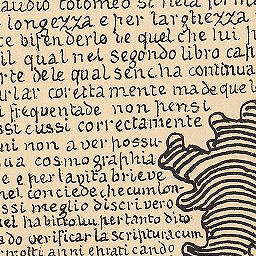 audio tolomeo si neta form
longezza e per larghezza
te bifenderlo ue quel che lui h
il qual nel segondo libro cap
rte dele qual sencha continua
urlar corettamente ma de que l
frequentade non pensi
ssi cussi correctamente
ui non a ver possu
uia cosmographia
e e per la pita brieve
nel conciede che cumlon
ssi meglio discrivero
uel habitto lui per tanto dito
do verificar la scriptura cum
molti anni e hrati cando